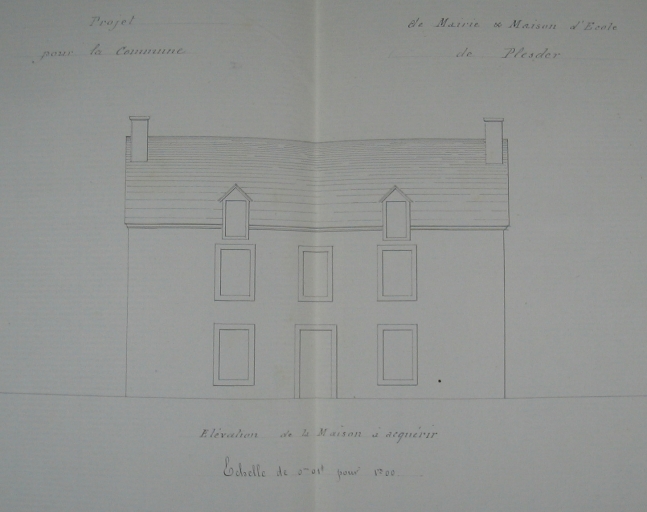 Projet de Mairie & Maison d'Ecole
pour la Commune de Plesder
Elévation de la Maison à acquérir
Echelle de 0m01c pour 1m00